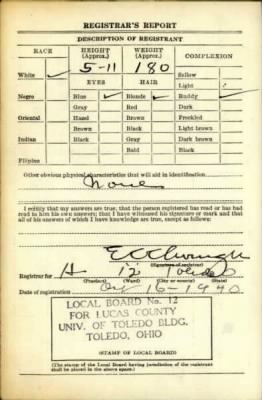 REGISTRAR'S REPORT
DESCRIPTION OF REGISTRANT
RACE HEIGHT (Approx.) WEIGHT (Approx.) COMPLEXION
5-11 180 Sallow
White ✓ EYES HAIR Light
Negro Blue ✓ Blonde ✓ Ruddy ✓
Gray Red Dark
Oriental Hazel Brown Freckled
Brown Black Light brown
Indian Black Gray Dark brown
Bald Black
Filipino
Other obvious physical characteristics that will aid in identification
None
I certify that my answers are true; that the person registered has read or has had read to him his own answers; that I have witnessed his signature or mark and that all of his answers of which I have knowledge are true, except as follows:
(Signature of registrar)
Registrar for 12 Toledo O
(Precinct) (Ward) (City or county) (State)
Date of registration Oct 16-1940
LOCAL BOARD No. 12
FOR LUCAS COUNTY
UNIV. OF TOLEDO BLDG.
TOLEDO, OHIO
(STAMP OF LOCAL BOARD)
(The stamp of the Local Board having jurisdiction of the registrant shall be placed in the above space.)